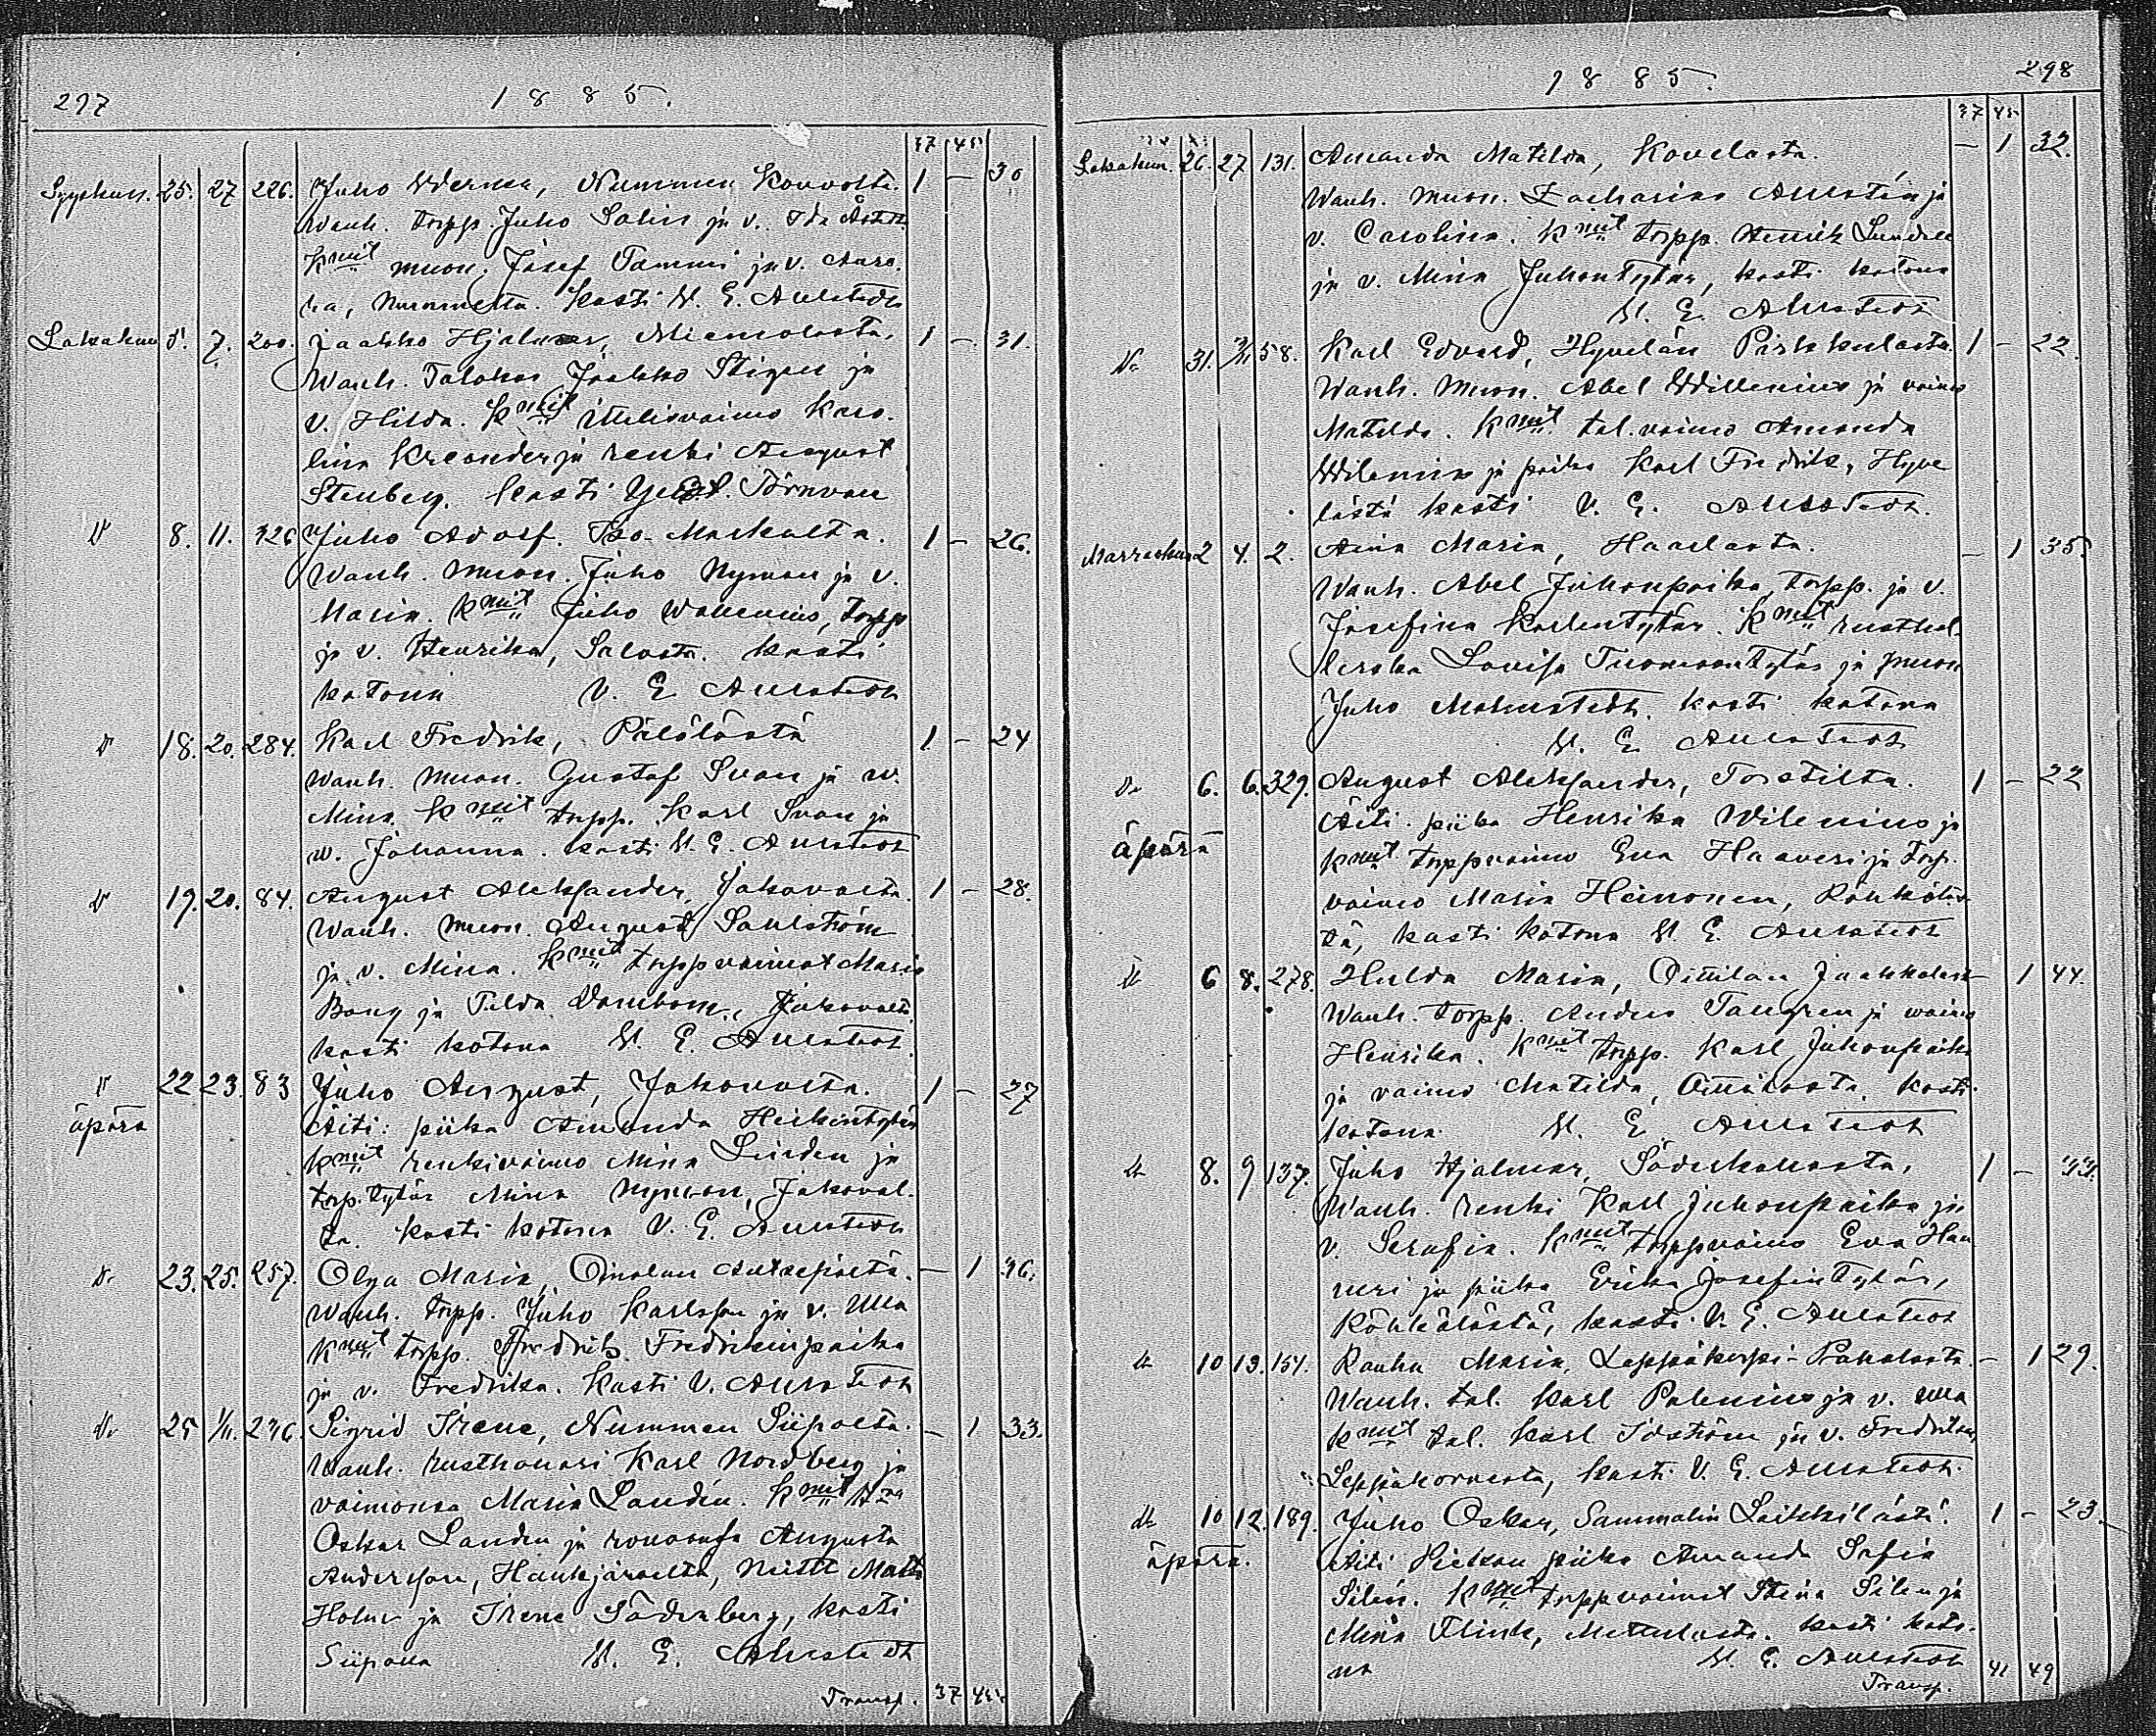 297
1885.
37 45
Syyskuu. 25. 27 226. Juho Werner, Nummen Kouvolta. 1 — 30
Wanh. torpp. Juho Salin ja v. Ida
Kmit muon. Josef Tammi ja v. Auro-
ra, Nummelta. Kasti V. E. Aulstedt
Lokakuu 5. 7. 200. Jaakko Hjalmar, Niemolasta. 1 — 31.
Wanh. Talokas Jaakko Stigen ja
v. Hilda. Kmit itellisvaimo Karo-
lina Kreander ja renki August
Stenberg. Kasti Törnvan
D 8. 11. 326 Juho Adolf. Iso-Markulta. 1 — 26.
Wanh. muon. Juho Nyman ja v.
Maria. Kmit Juho Wallenius, torpp
ja v. Henrika, Salosta. Kasti
kotona V. E. Aulstedt
D 18. 20. 284. Karl Fredrik, Pälölästä 1 — 24
Wanh. muon. Gustaf Svan ja w.
Mina. Kmit torpp. Karl Svan ja
w. Johanna. Kasti V. E. Aulstedt
D 19. 20. 84. August Aleksander, Jakovalta. 1 — 28.
Wanh. muon. August Saulström
ja v. Mina. Kmit torppvaimot Maria
Bang ja Tilda Jakovalta
kasti kotona V. E. Aulstedt.
D 22 23. 83 Juho August, Jakovalta. 1 — 27
äpärä Äiti: piika Amanda Heikintytär
Kmit renkivaimo Mina Linden ja
torp. tytär Mina Nyman, Jakoval-
ta. Kasti kotona V. E. Aulstedt
D. 23. 25. 257. Olga Maria, Oinolan Anttepolta. — 1 36.
Wanh. torpp. Juho Karlsson ja v. Ulla
Kmit torpp. Fredrik Fredrikinpoika
ja v. Fredrika. Kasti V. Aulstedt
D. 25 1/11. 236. Sigrid Irene, Nummen Siipolta. — 1 33.
Wanh. rusthollari Karl Nordberg ja
vaimonsa Maria Landén. Kmit
Oskar Landen ja rouvansa Augusta
Andersson, Haukjärveltä, Matts
Holm ja Irene Söderberg, kasti
Siipolla V. E. Aulstedt
Transp. 37 45.
1885.
298
37 45
Lokakuu. 26. 27 131. Amanda Matilda, Kovelasta. — 1 32.
Wanh. muon. Zacharias Aulstén ja
v. Carolina. Kmit torpp. Henrik Lundell
ja v. Mina Juhontytär, kasti kotona
V. E. Aulstedt
D. 31. 58. Karl Edvard, Hyvelän Pirkkulasta. 1 — 22.
Wanh. muon. Abel Willenius ja vaimo
Matilda. Kmit tal. vaimo Amanda
Wilenius ja poika Karl Fredrik, Hyve-
lästä kasti V. E. Aulstedt.
Marraskuu 2 4. 2. Aina Maria, Haarlasta. — 1 35.
Wanh. Abel Juhonpoika torpp. ja v.
Josefina Karlentytär. Kmit rusthol-
lerska Lovisa Tuomaantytär ja muon
Juho Malmstedt. kasti kotona
V. E. Aulstedt
D. 6. 6. 329. August Aleksander, Torstilta. 1 — 22
äpärä Äiti. piika Henrika Wilenius ja
Kmit torppvaimo Eva Haaveri ja torp.
vaimo Maria Heinonen, Köhköläs-
tä, kasti kotona V. E. Aulstedt
D. 6 8. 278. Hulda Maria, Ottilan Jaakkolast — 1 44.
Wanh. torpp. Anders Tangren ja waimo
Henrika. Kmit torpp. Karl Juhonpoika
ja vaimo Matilda, Ottilasta. Kasti
kotona. V. E. Aulstedt
D. 8. 9 137. Juho Hjalmar, Söderkallasta, 1 — 33.
Wanh. renki Karl Juhonpoika ja
v. Serafia. Kmit torppvaimo Eva Haa-
veri ja piika Erika Josefintytär,
Köhkölästä, kasti V. E. Aulstedt
D. 10 13. 154. Rauha Maria, Leppäkorpi-Pakolasta. — 1 29.
Wanh. tal. Karl Palenius ja v. Ulla
Kmit tal. Karl Idström ja v. Fredrika,
Leppäkorvesta, kasti V. E. Aulstedt.
D. 10 12. 189. Juho Oskar, Sammalin Laikkilästä. 1 — 23.
äpärä. Äiti piika Amanda Sofia
Silén. Kmit torppvaimot Stina Silen ja
Mina Flink, kasti koto-
na V. E. Aulstedt
Transp. 41 49